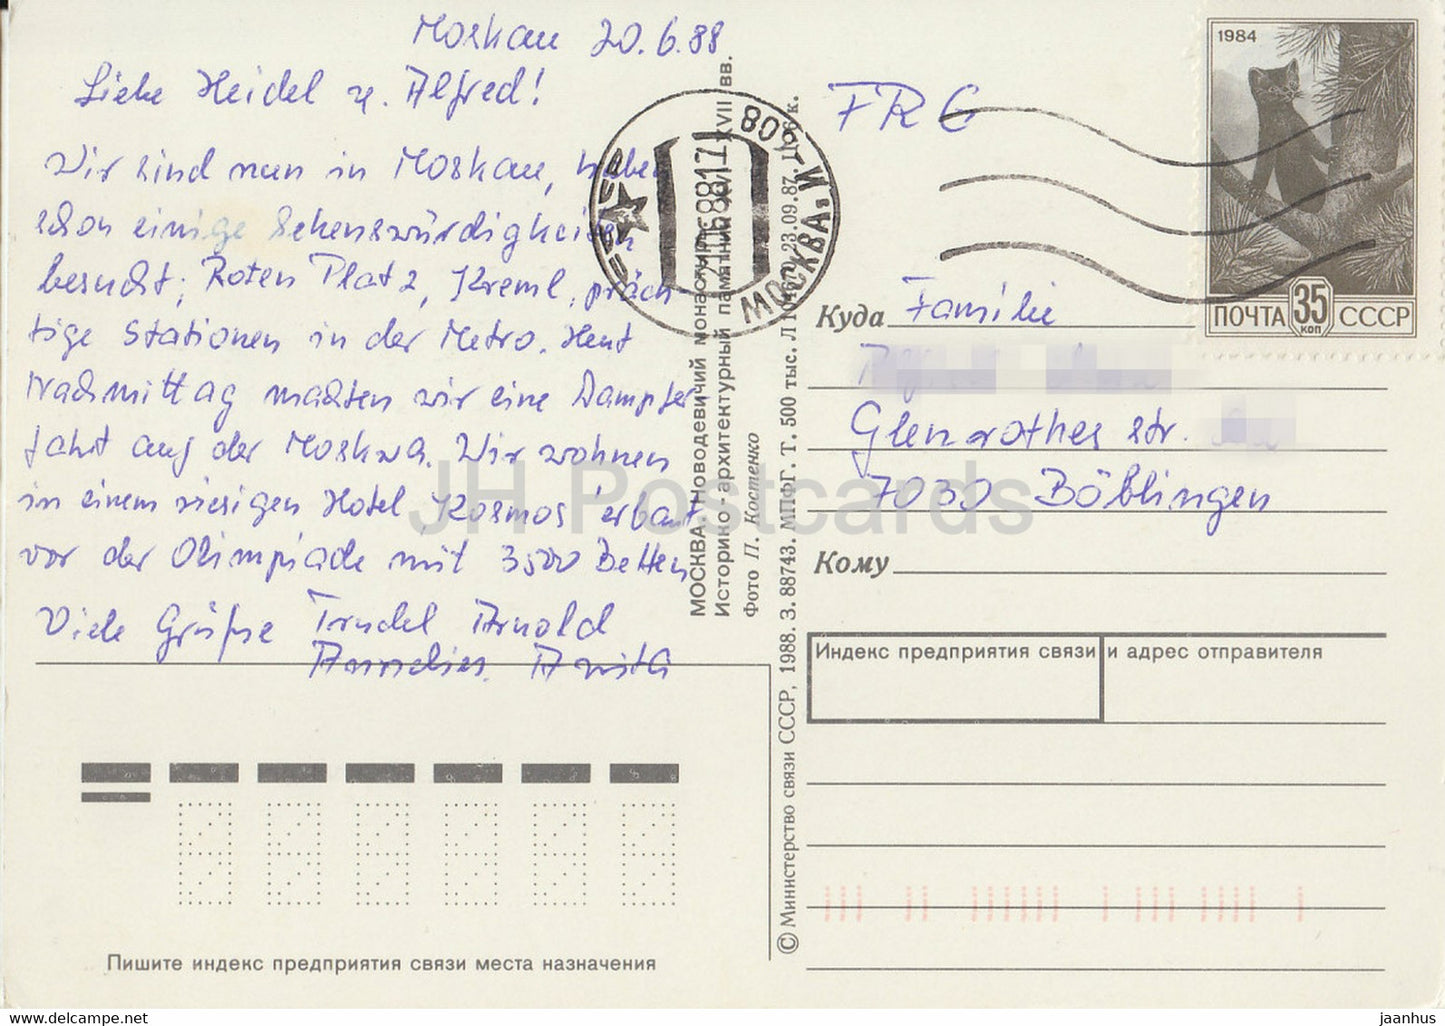 Moskau 20.6.88
Liebe Heidel u. Alfred!
Wir sind nun in Moskau, haben
schon einige Sehenswürdigkeiten
besucht; Roten Platz, Kreml, präch-
tige Stationen in der Metro. Heut
Nachmittag machten wir eine Dampfer
fahrt auf der Moskwa. Wir wohnen
in einem riesigen Hotel "Kosmos" erbaut
vor der Olimpiade mit 3500 Betten
Viele Grüße Trudel Arnold
Anita
Пишите индекс предприятия связи места назначения
МОСКВА. Новодевичий монастырь.
Историко-архитектурный памятник XVI—XVII вв.
Фото П. Костенко
© Министерство связи СССР, 1988. З. 88743. МПФГ. Т. 500 тыс. 23.09.87. Ц. 6 к.
МОСКВА
808
FRG
1984
ПОЧТА 35 КОП СССР
Куда Familie
Glenrothes str.
7030 Böblingen
Кому
Индекс предприятия связи и адрес отправителя
JH Postcards
www.delcampe.net
jaanhus